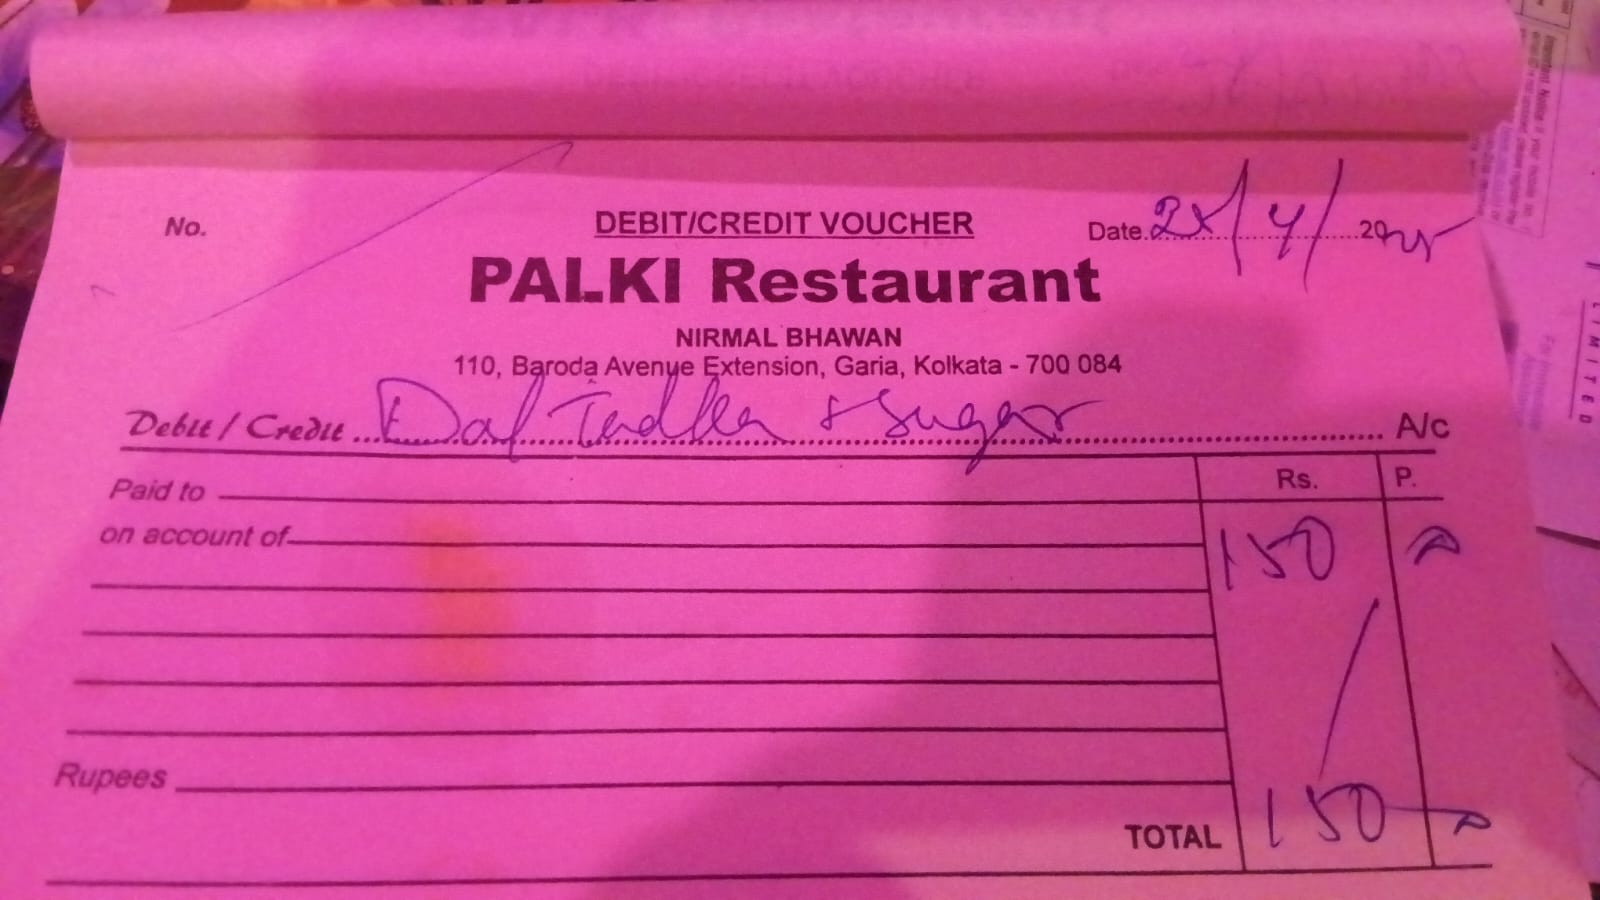 No.
DEBIT/CREDIT VOUCHER
Date 2x/4/2025
PALKI Restaurant
NIRMAL BHAWAN
110, Baroda Avenue Extension, Garia, Kolkata - 700 084
Debit / Credit Dal Tadka & Sugar A/c
Paid to Rs. P.
on account of 150
Rupees
TOTAL 150
LIMITED